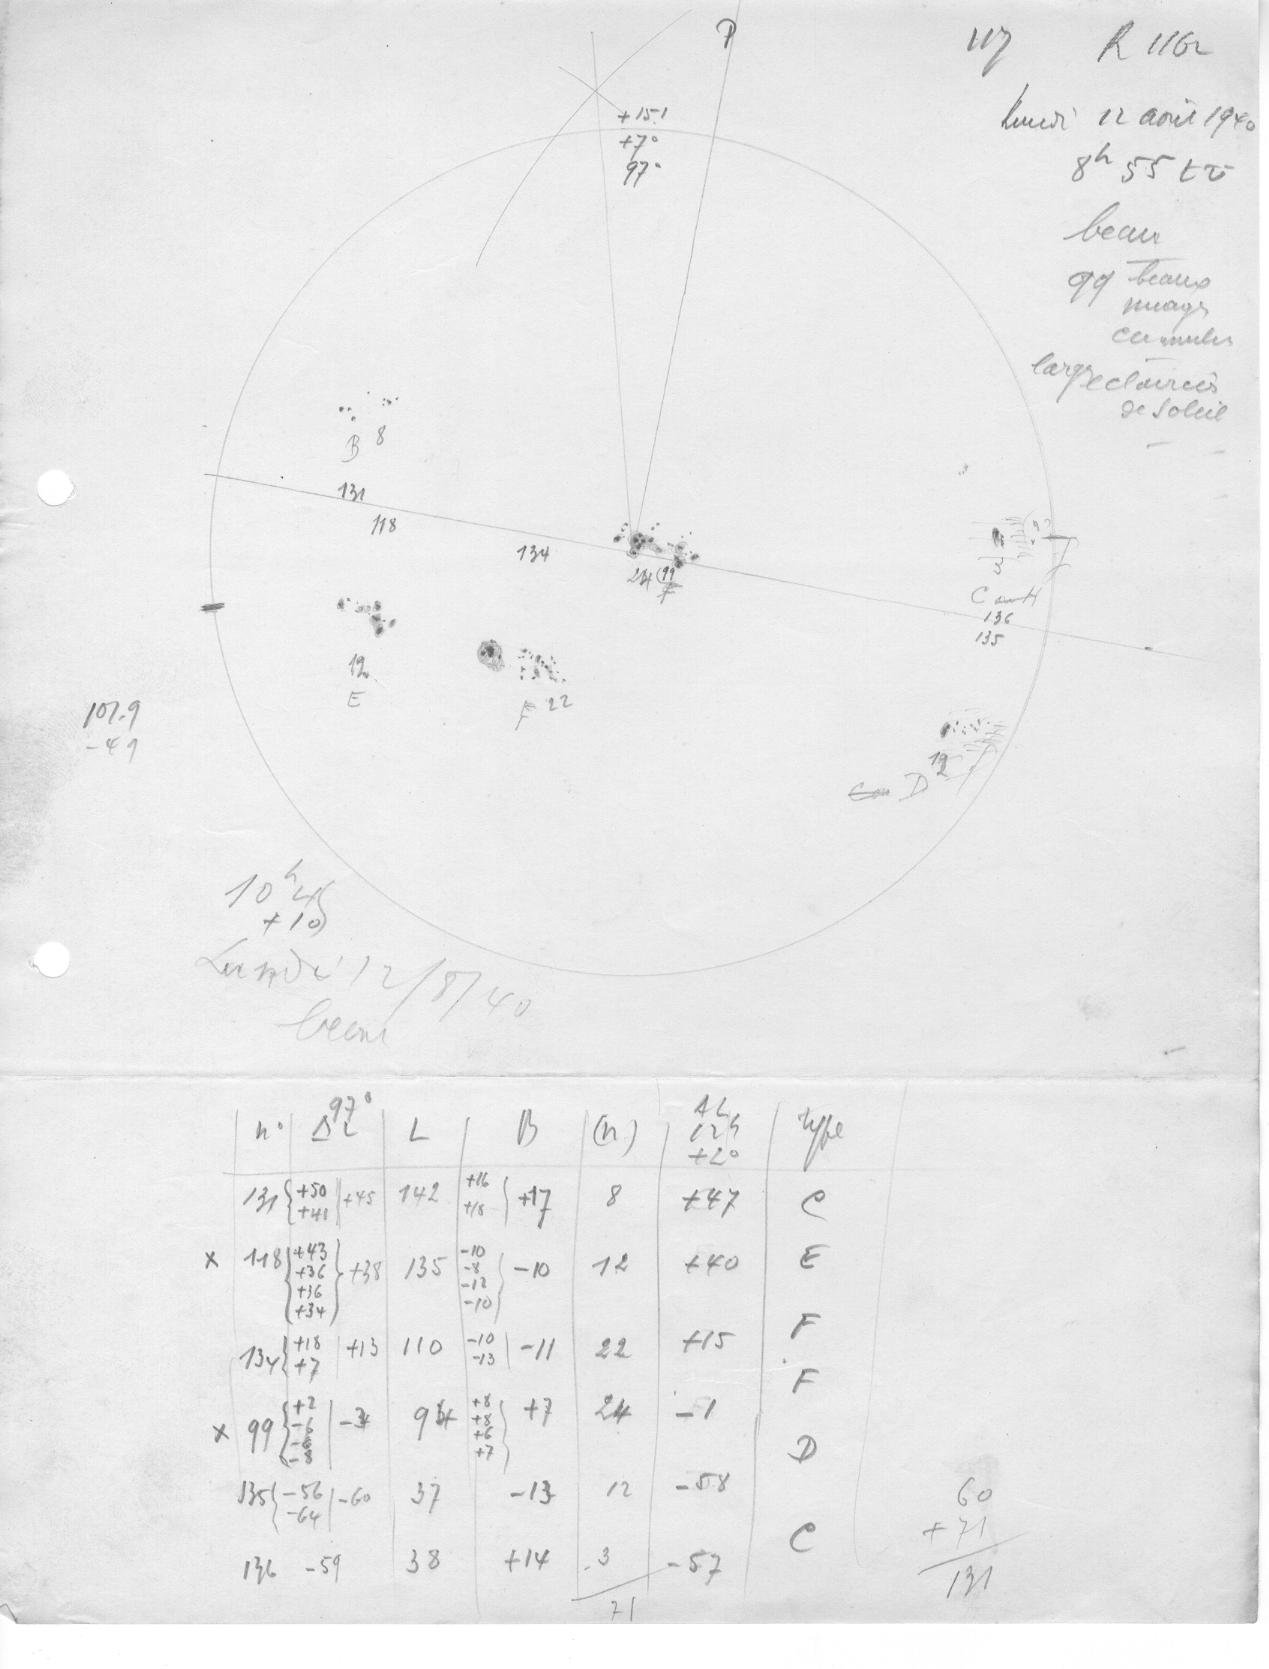 P
R 1162
+15.1
+7°
97°
lundi 12 août 1940
8h 55 TU
beau
qq beaux
nuages
cumulus
larges eclaircies
de soleil
B 8
131
118
134
24 (99
F
C ou H
136
135
12
E
F 22
107.9
-49
12
D
10h 45
+10
Lundi 12/8/40
beau
n° ΔL 97° L B (n) 12h +2° type
131 +50 +41 +45 142 +16 +18 +17 8 +47 C
x 118 +43 +36 +36 +34 +38 135 -10 -8 -12 -10 -10 12 +40 E
134 +18 +7 +13 110 -10 -13 -11 22 +15 F
x 99 +2 -6 -6 -8 +8 +8 +6 +7 +7 24 -1 F
135 -56 -64 -60 37 -13 12 -58 D
136 -59 38 +14 3 -57 C
71
60
+71
131